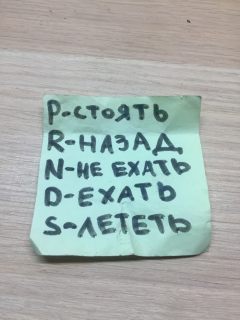 P-СТОЯТЬ
R-НАЗАД
N-НЕ ЕХАТЬ
D-ЕХАТЬ
S-ЛЕТЕТЬ